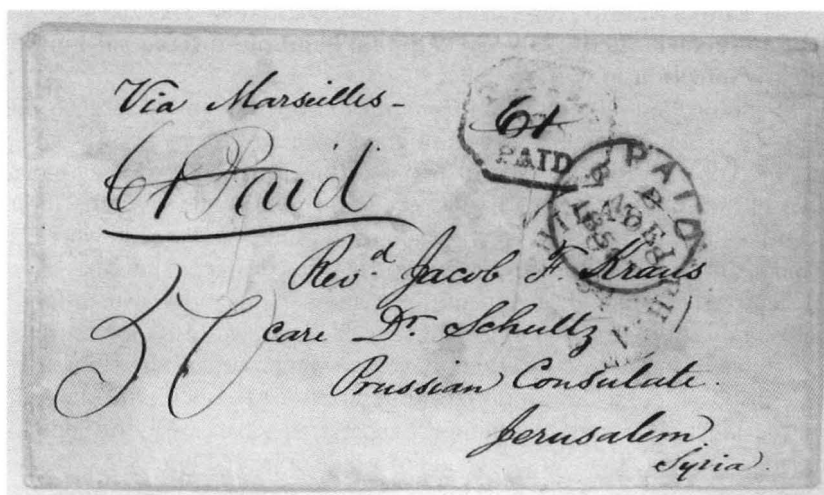 Via Marseilles -
61 Paid
61
PAID
PAID
Rev.d Jacob F. Kraus
care Dr. Schultz
Prussian Consulate.
Jerusalem
Syria.